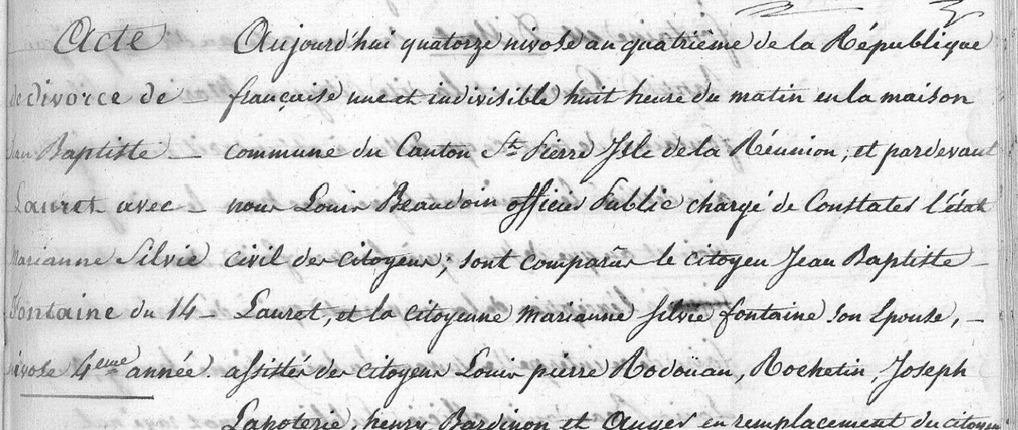 Acte
de divorce de
Jean Baptiste _
Lauret avec _
Marianne Silvie
fontaine du 14 _
nivose 4eme année.
Aujourd'hui quatorze nivose an quatrième de la République
française une et indivisible huit heure du matin en la maison
commune du Canton St. Pierre Isle de la Réunion, et pardevant
nous Louis Beaudoin officier Public chargé de Constater l'état
civil des citoyens; sont comparus le citoyen Jean Baptiste _
Lauret, et la citoyenne Marianne Silvie fontaine son Epouse, _
assistés des citoyens Louis pierre Rodoüan, Rochetin, Joseph
Lapoterie, henry Bardinon et Auger en remplacement du citoyen